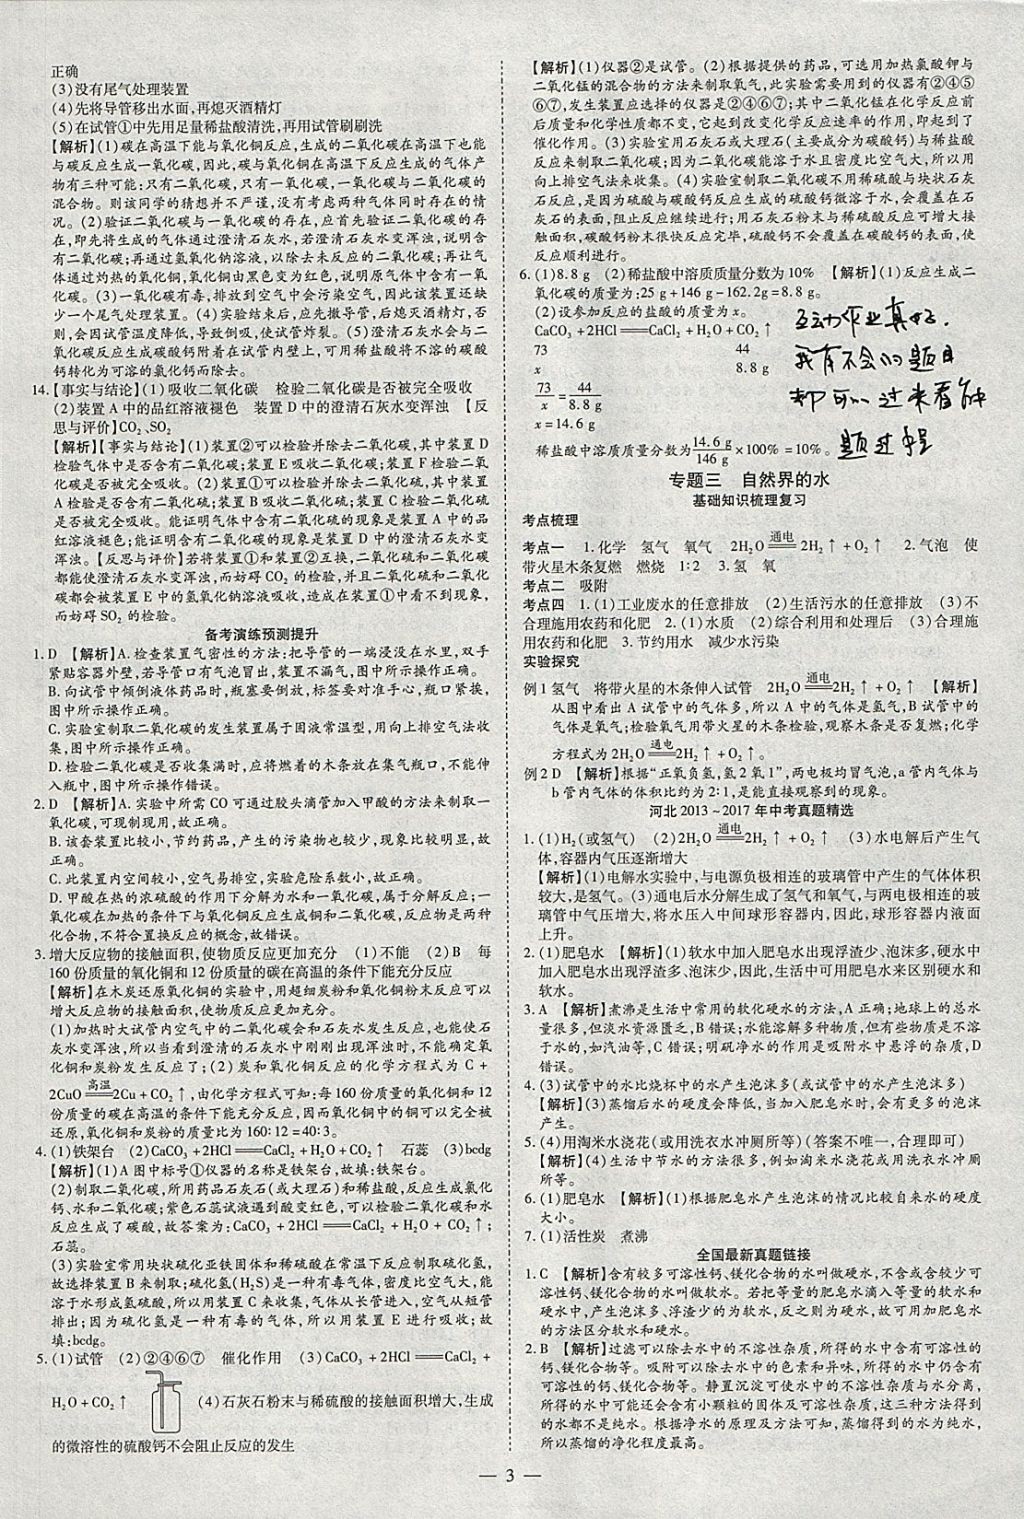 正确
(3)没有尾气处理装置
(4)先将导管移出水面,再熄灭酒精灯
(5)在试管①中先用足量稀盐酸清洗,再用试管刷刷洗
【解析】(1)碳在高温下能与氧化铜反应,生成的二氧化碳在高温下也能
与碳反应生成一氧化碳,因此,碳与氧化铜在高温下反应生成的气体产
物有三种可能:只有二氧化碳,只有一氧化碳,一氧化碳与二氧化碳的
混合物。则该同学的猜想并不严谨,没有考虑两种气体同时存在的情
况。(2)验证二氧化碳与一氧化碳的存在,应首先验证二氧化碳的存
在,即先将生成的气体通过澄清石灰水,若澄清石灰水变浑浊,说明含
有二氧化碳;再通过氢氧化钠溶液,以除去未反应的二氧化碳;再让气
体通过灼热的氧化铜,氧化铜由黑色变为红色,说明原气体中含有一氧
化碳。(3)一氧化碳有毒,排放到空气中会污染空气,因此该装置还缺
少一个尾气处理装置。(4)实验结束后,应先撤导管,后熄灭酒精灯,否
则,会因试管温度降低,导致倒吸,使试管炸裂。(5)澄清石灰水会与二
氧化碳反应生成碳酸钙附着在试管内壁上,可用稀盐酸将不溶的碳酸
钙转化为可溶的氯化钙而除去。
14.【事实与结论】(1)吸收二氧化碳 检验二氧化碳是否被完全吸收
(2)装置 A 中的品红溶液褪色 装置 D 中的澄清石灰水变浑浊 【反
思与评价】CO₂、SO₂
【解析】【事实与结论】(1)装置②可以检验并除去二氧化碳,其中装置 D
检验气体中是否含有二氧化碳;装置 E 吸收二氧化碳;装置 F 检验二氧
化碳是否被完全吸收。(2)装置①可以检验并除去二氧化硫,其中装置
A 检验是否含有二氧化硫;装置 B 吸收二氧化硫;装置 C 检验二氧化硫
是否被完全吸收。能证明气体中含有二氧化硫的现象是装置 A 中的品
红溶液褪色;能证明含有二氧化碳的现象是装置 D 中的澄清石灰水变
浑浊。【反思与评价】若将装置①和装置②互换,二氧化碳和二氧化硫
都能使澄清石灰水变浑浊,而妨碍 CO₂ 的检验,并且二氧化硫和二氧化
碳都会被装置 E 中的氢氧化钠溶液吸收,造成在装置①中看不到现象,
而妨碍 SO₂ 的检验。
备考演练预测提升
1. D 【解析】A. 检查装置气密性的方法:把导管的一端浸没在水里,双手
紧贴容器外壁,若导管口有气泡冒出,装置不漏气,图中所示操作正确。
B. 向试管中倾倒液体药品时,瓶塞要倒放,标签要对准手心,瓶口紧挨,
图中所示操作正确。
C. 实验室制取二氧化碳的发生装置属于固液常温型,用向上排空气法收
集,图中所示操作正确。
D. 检验二氧化碳是否收集满时,应将燃着的木条放在集气瓶口,不能伸
入瓶中,图中所示操作错误。
2. D 【解析】A. 实验中所需 CO 可通过胶头滴管加入甲酸的方法来制取一
氧化碳,故正确。
B. 该套装置比较小,节约药品,产生的污染物也比较少,比较环保,故
正确。
C. 此装置内空间较小,空气易排空,实验危险系数小,故正确。
D. 甲酸在热的浓硫酸的作用下分解为水和一氧化碳,属于分解反应;一
氧化碳在加热的条件下与氧化铜反应生成铜和二氧化碳,反应物是两种
化合物,不符合置换反应的概念,故错误。
3. 增大反应物的接触面积,使物质反应更加充分 (1)不能 (2)B 每
160 份质量的氧化铜和 12 份质量的碳在高温的条件下能充分反应
【解析】在木炭还原氧化铜的实验中,用超细炭粉和氧化铜粉末反应可以
增大反应物的接触面积,使物质反应更加充分。
(1)加热时大试管内空气中的二氧化碳会和石灰水发生反应,也能使石
灰水变浑浊,所以当看到澄清的石灰水中刚刚出现浑浊时,不能确定氧
化铜和炭粉发生反应了;(2)炭和氧化铜反应的化学方程式为 C +
2CuO═高温═2Cu + CO₂↑,由化学方程式可知:每 160 份质量的氧化铜和 12
份质量的碳在高温的条件下能充分反应,因而氧化铜中的铜可以完全被
还原,氧化铜和炭粉的质量比为 160∶12 = 40∶3。
4. (1)铁架台 (2)CaCO₃ + 2HCl═══CaCl₂ + H₂O + CO₂↑ 石蕊 (3)bcdg
【解析】(1)A 图中标号①仪器的名称是铁架台,故填:铁架台。
(2)制取二氧化碳,所用药品石灰石(或大理石)和稀盐酸,反应生成氯化
钙、水和二氧化碳;紫色石蕊试液遇到酸变红色,可以证明二氧化碳和水
反应生成了碳酸,故答案为:CaCO₃ + 2HCl═══CaCl₂ + H₂O + CO₂↑;
石蕊。
(3)实验室常用块状硫化亚铁固体和稀硫酸在常温下反应制取硫化氢,
故选择装置 B 来制取;硫化氢(H₂S)是一种有毒气体,密度比空气大,能
溶于水形成氢硫酸,所以用装置 C 来收集,气体从长管进入,空气从短管
排出;因为硫化氢是一种有毒的气体,所以用装置 E 进行吸收;故
填:bcdg。
5. (1)试管 (2)②④⑥⑦ 催化作用 (3)CaCO₃ + 2HCl═══CaCl₂ +
H₂O + CO₂↑ (4)石灰石粉末与稀硫酸的接触面积增大,生成
的微溶性的硫酸钙不会阻止反应的发生
【解析】(1)仪器②是试管。(2)根据提供的药品,可选用加热氯酸钾与
二氧化锰的混合物的方法来制取氧气,此实验需要用到的仪器有②④⑤
⑥⑦,发生装置应选择的仪器是②④⑥⑦;其中二氧化锰在化学反应前
后质量和化学性质都不变,它起到改变化学反应速率的作用,即起到了
催化作用。(3)实验室用石灰石或大理石(主要成分为碳酸钙)与稀盐酸
反应来制取二氧化碳;因为二氧化碳能溶于水且密度比空气大,所以用
向上排空气法来收集。(4)实验室制取二氧化碳不用稀硫酸与块状石灰
石反应,是因为硫酸与碳酸钙反应生成的硫酸钙微溶于水,会覆盖在石
灰石的表面,阻止反应继续进行;用石灰石粉末与稀硫酸反应可增大接
触面积,碳酸钙粉末很快反应完毕,硫酸钙不会覆盖在碳酸钙的表面,使
反应顺利进行。
6. (1)8.8 g (2)稀盐酸中溶质质量分数为 10% 【解析】(1)反应生成二
氧化碳的质量为:25 g + 146 g - 162.2g = 8.8 g。
(2)设参加反应的盐酸的质量为 x。
CaCO₃ + 2HCl═══CaCl₂ + H₂O + CO₂↑
73 44
x 8.8 g
73/x = 44/8.8 g
x = 14.6 g
稀盐酸中溶质质量分数为 14.6 g/146 g × 100% = 10%。
互动作业真好.
我有不会的题目
却可以过来看解
题过程
专题三 自然界的水
基础知识梳理复习
考点梳理
考点一 1. 化学 氢气 氧气 2H₂O═通电═2H₂↑ + O₂↑ 2. 气泡 使
带火星木条复燃 燃烧 1∶2 3. 氢 氧
考点二 吸附
考点四 1. (1)工业废水的任意排放 (2)生活污水的任意排放 (3)不
合理施用农药和化肥 2. (1)水质 (2)综合利用和处理后 (3)合理施
用农药和化肥 3. 节约用水 减少水污染
实验探究
例 1 氢气 将带火星的木条伸入试管 2H₂O═通电═2H₂↑ + O₂↑ 【解析】
从图中看出 A 试管中的气体多,所以 A 中的气体是氢气,B 试管中的
气体是氧气;检验氧气用带火星的木条检验,观察木条是否复燃;化学
方程式为 2H₂O═通电═2H₂↑ + O₂↑。
例 2 D 【解析】根据“正氧负氢,氢 2 氧 1”,两电极均冒气泡,a 管内气体与
b 管内气体的体积比约为 2∶1,是能直接观察到的现象。
河北 2013~2017 年中考真题精选
1. (1)H₂(或氢气) (2)2H₂O═通电═2H₂↑ + O₂↑ (3)水电解后产生气
体,容器内气压逐渐增大
【解析】(1)电解水实验中,与电源负极相连的玻璃管中产生的气体体积
较大,是氢气。(3)通电后水分解生成了氢气和氧气,与两电极相连的玻
璃管中气压增大,将水压入中间球形容器内,因此,球形容器内液面
上升。
2. (1)肥皂水 【解析】(1)软水中加入肥皂水出现浮渣少、泡沫多,硬水中
加入肥皂水出现浮渣多、泡沫少,因此,生活中可用肥皂水来区别硬水和
软水。
3. A 【解析】煮沸是生活中常用的软化硬水的方法,A 正确;地球上的总水
量很多,但淡水资源匮乏,B 错误;水能溶解多种物质,但有些物质是不溶
于水的,如汽油等,C 错误;明矾净水的作用是吸附水中悬浮的杂质,D
错误。
4. (3)试管中的水比烧杯中的水产生泡沫多(或试管中的水产生泡沫多)
【解析】(3)蒸馏后水的硬度会降低,当加入肥皂水时,会有更多的泡沫
产生。
5. (4)用淘米水浇花(或用洗衣水冲厕所等)(答案不唯一,合理即可)
【解析】(4)生活中节水的方法很多,例如淘米水浇花或用洗衣水冲厕
所等。
6. (1)肥皂水 【解析】(1)根据肥皂水产生泡沫的情况比较自来水的硬度
大小。
7. (1)活性炭 煮沸
全国最新真题链接
1. C 【解析】含有较多可溶性钙、镁化合物的水叫做硬水,不含或含较少可
溶性钙、镁化合物的水叫做软水。若把等量的肥皂水滴入等量的软水和
硬水中,产生泡沫多、浮渣少的为软水,反之则为硬水,故可用加肥皂水
的方法区分软水和硬水。
2. B 【解析】过滤可以除去水中的不溶性杂质,所得的水中含有可溶性的
钙、镁化合物等。吸附可以除去水中的色素和异味,所得的水中仍含有
可溶性的钙、镁化合物等。静置沉淀可使水中的不溶性杂质与水分离,
所得的水中可能还会含有小颗粒的固体及可溶性杂质,这三种方法得到
的水都不是纯水。根据净水的原理及方法可知,蒸馏得到的水为纯水,
所以蒸馏的净化程度最高。
— 3 —